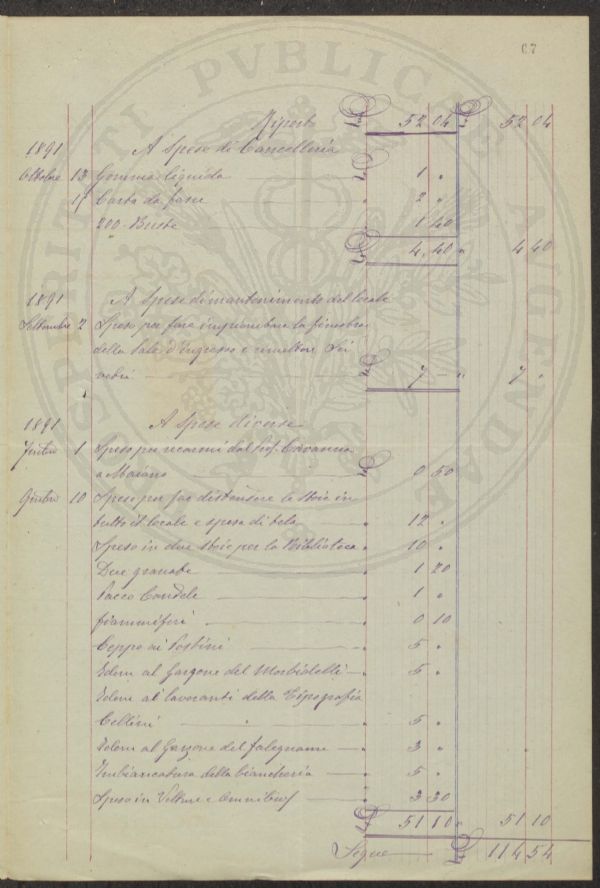 67
Riporto L. 52 04 L. 52 04
1891 A Spese di Cancelleria
Ottobre 13 Gomma liquida L. 1 "
15 Carta da " 2 "
200 Buste 1 40
L. 4, 40 " 4 40
1891 A Spese di mantenimento del locale
Settembre 2 Spese per fare la finestra
della Sala d'Ingresso e rimettere sei
vetri L. 7 " 7 "
1891 A Spese diverse
1 Speso per recarmi dal Prof. Cavanna
a Maiano L. 0 50
10 Spese per far distendere le stoie in
tutto il locale e spesa di tela " 12 "
Speso in due stoie per la Biblioteca " 10 "
Due granate 1 20
Pacco Candele " 1 "
fiammiferi " 0 10
Ceppo ai Postini " 5 "
Idem al Garzone del Morbidelli " 5 "
Idem ai lavoranti della Tipografia
Cellini " 5 "
Idem al Garzone del falegname " 3 "
Imbiancatura della biancheria " 5 "
Speso in Vetture e Omnibus " 3 30
L. 51 10 " 51 10
Segue L. 114 54